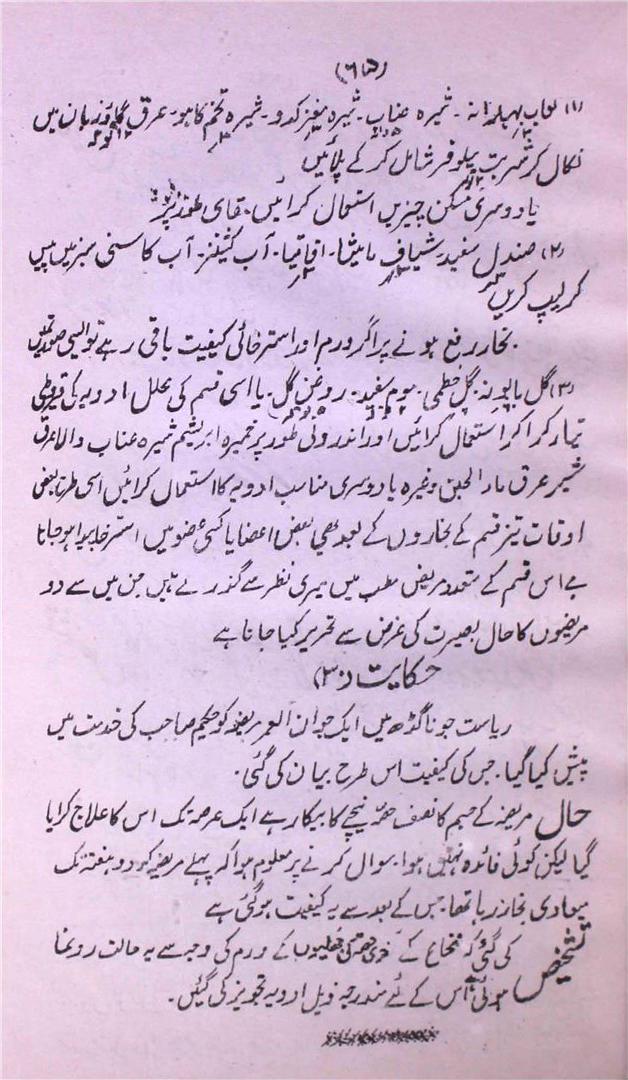 (۶۵)
(۱) لعاب بہیدانہ۔ شیرہ عناب۔ شیرہ مغز کدو۔ شیرہ تخم کاہو۔ عرق گاؤزبان میں
نکال کر شربت نیلوفر شامل کر کے پلائیں
یا دوسری مسکن چیزیں استعمال کرائیں۔ مقامی طور پر
(۲) صندل سفید۔ شیاف مامیثا۔ اقاقیا۔ آب کشنیز۔ آب کاسنی سبز میں پیس
کر لیپ کریں
بخار رفع ہونے پر اگر ورم اور استرخائی کیفیت باقی رہے تو ایسی صورتمیں
(۳) گل بابونہ۔ گل خطمی۔ موم سفید۔ روغن گل۔ یا اسی قسم کی محلل ادویہ کی قیروطی
تیار کرا کر استعمال کرائیں اور اندرونی طور پر خمیرہ ابریشم شیرہ عناب والا عرق
شیر عرق ماء الجبن وغیرہ یا دوسری مناسب ادویہ کا استعمال کرائیں اسی طرح بعض
اوقات تیز قسم کے بخاروں کے بعد بھی بعض اعضا یا کسی عضو میں استرخا پیدا ہو جاتا
ہے اس قسم کے متعدد مریض مطب میں میری نظر سے گذرے ہیں جن میں سے دو
مریضوں کا حال بصیرت کی غرض سے تحریر کیا جاتا ہے
حکایت (۳۰)
ریاست جوناگڑھ میں ایک جوان العمر مریضہ کو حکیم صاحب کی خدمت میں
پیش کیا گیا۔ جس کی کیفیت اس طرح بیان کی گئی۔
حال مریضہ کے جسم کا نصف حصہ نیچے کا بیکار ہے ایک عرصہ تک اس کا علاج کرایا
گیا لیکن کوئی فائدہ نہیں ہوا۔ سوال کرنے پر معلوم ہوا کہ پہلے مریضہ کو دو ہفتہ تک
میعادی بخار رہا تھا۔ جس کے بعد سے یہ کیفیت ہو گئی ہے
تشخیص کی گئی کہ نخاع کے جھلیوں کے ورم کی وجہ سے یہ حالت رونما
ہوئی ہے اس کے لئے مندرجہ ذیل ادویہ تجویز کی گئیں۔